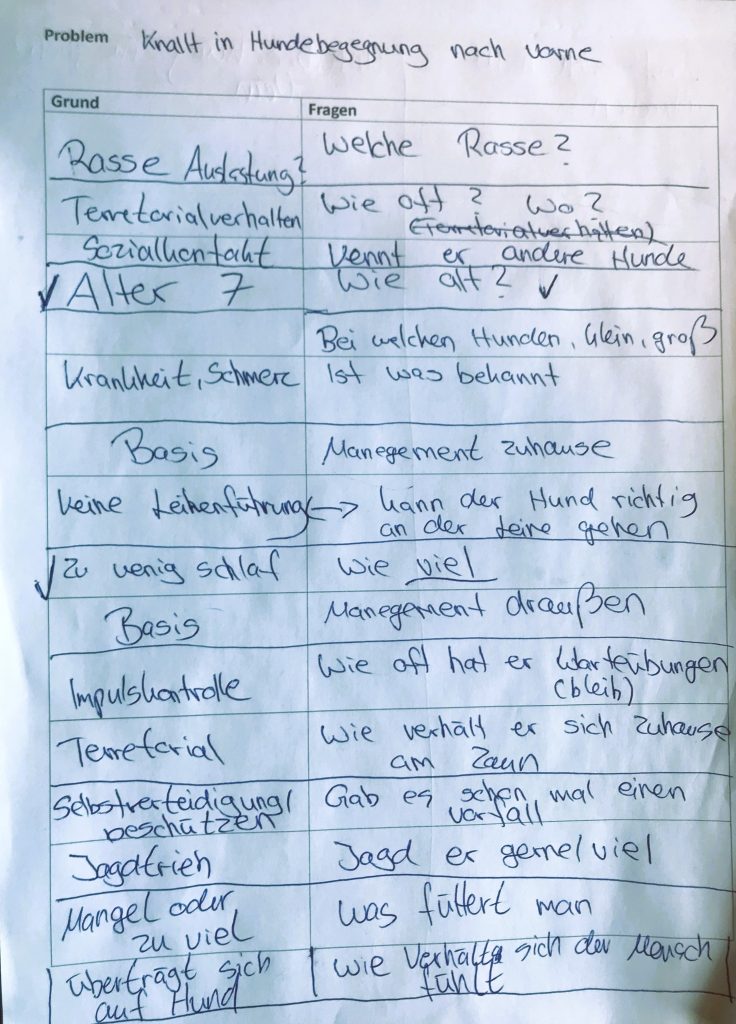 Problem Knallt in Hundebegegnung nach vorne
Grund Fragen
Rasse Auslastung? Welche Rasse?
Terretorialverhalten Wie oft? Wo?
(Terretorialverhalten)
Sozialkontakt Kennt er andere Hunde
✓ Alter 7 Wie alt? ✓
Bei welchen Hunden, klein, groß
Krankheit, Schmerz Ist was bekannt
Basis Manegement zuhause
Keine Leihenführung <-> kann der Hund richtig
an der Leine gehen
✓ Zu wenig schlaf Wie viel
Basis Manegement draußen
Impulskontrolle Wie oft hat er Warteübungen
(bleib)
Terretorial Wie verhält er sich zuhause
am Zaun
Selbstverteidigung/ Gab es schon mal einen
beschützen vorfall
Jagdtrieb Jagd er gerne/viel
Mangel oder
zu viel Was füttert man
überträgt sich Wie verhält sich der Mensch
auf Hund fühlt